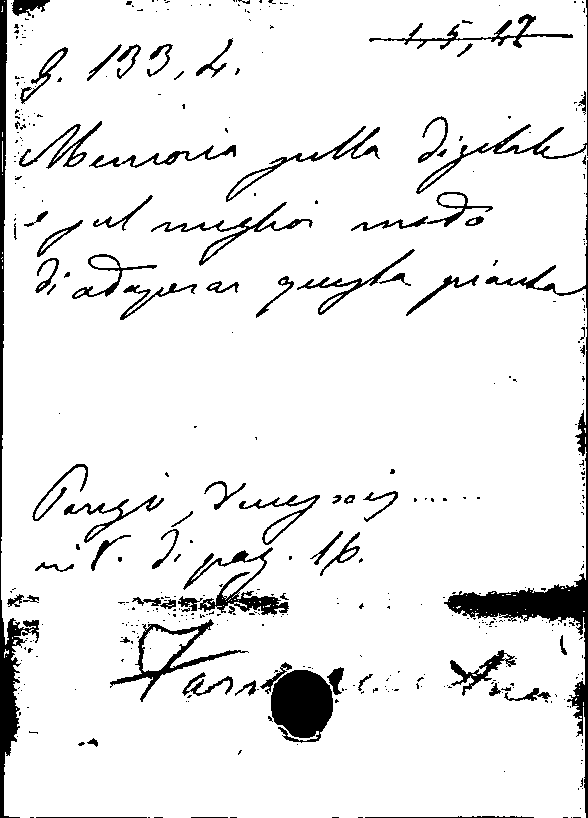 1, 5, 17
G. 133, 4.
Memoria sulla digitale
e sul miglior modo
di adoperar questa pianta
Parigi,
in 8. di pag. 16.